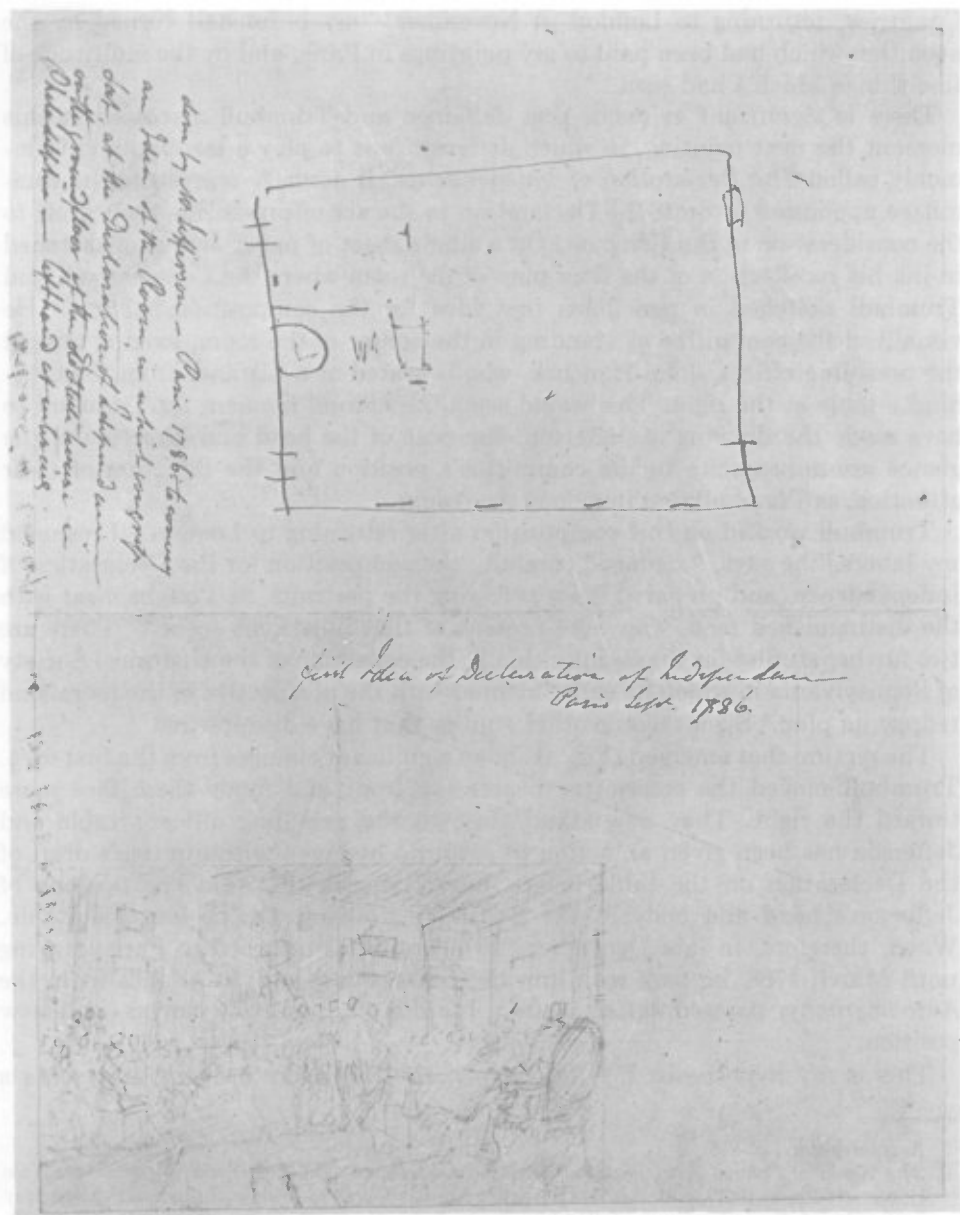 done by Mr Jefferson – Paris 1786 to convey
an Idea of the Room in which congress
sat, at the Declaration of Independence
on the ground floor of the old State house in
Philadelphia – left hand at entering
first Idea of Declaration of Independence
Paris Sept. 1786.